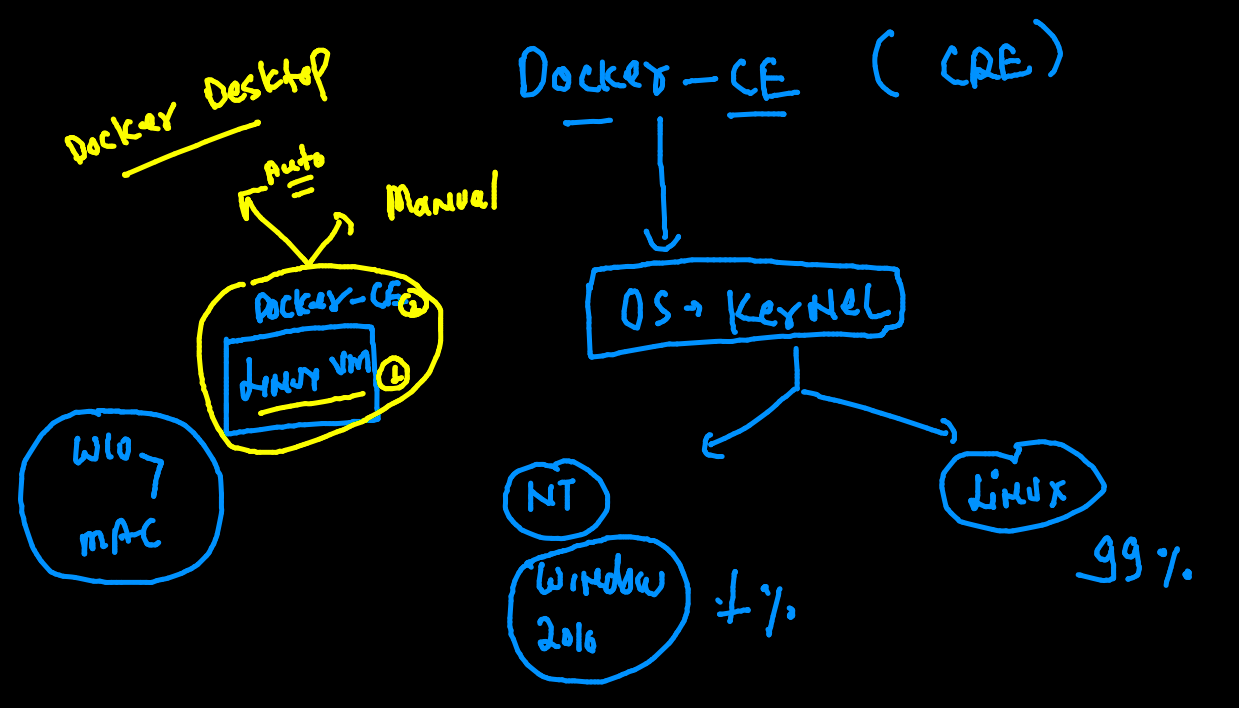 Docker Desktop
Auto
Manual
Docker-CE 2
Linux VM 1
W10
MAC
Docker - CE (CRE)
OS → KerNeL
NT
Window
2016
Linux
1%
99%